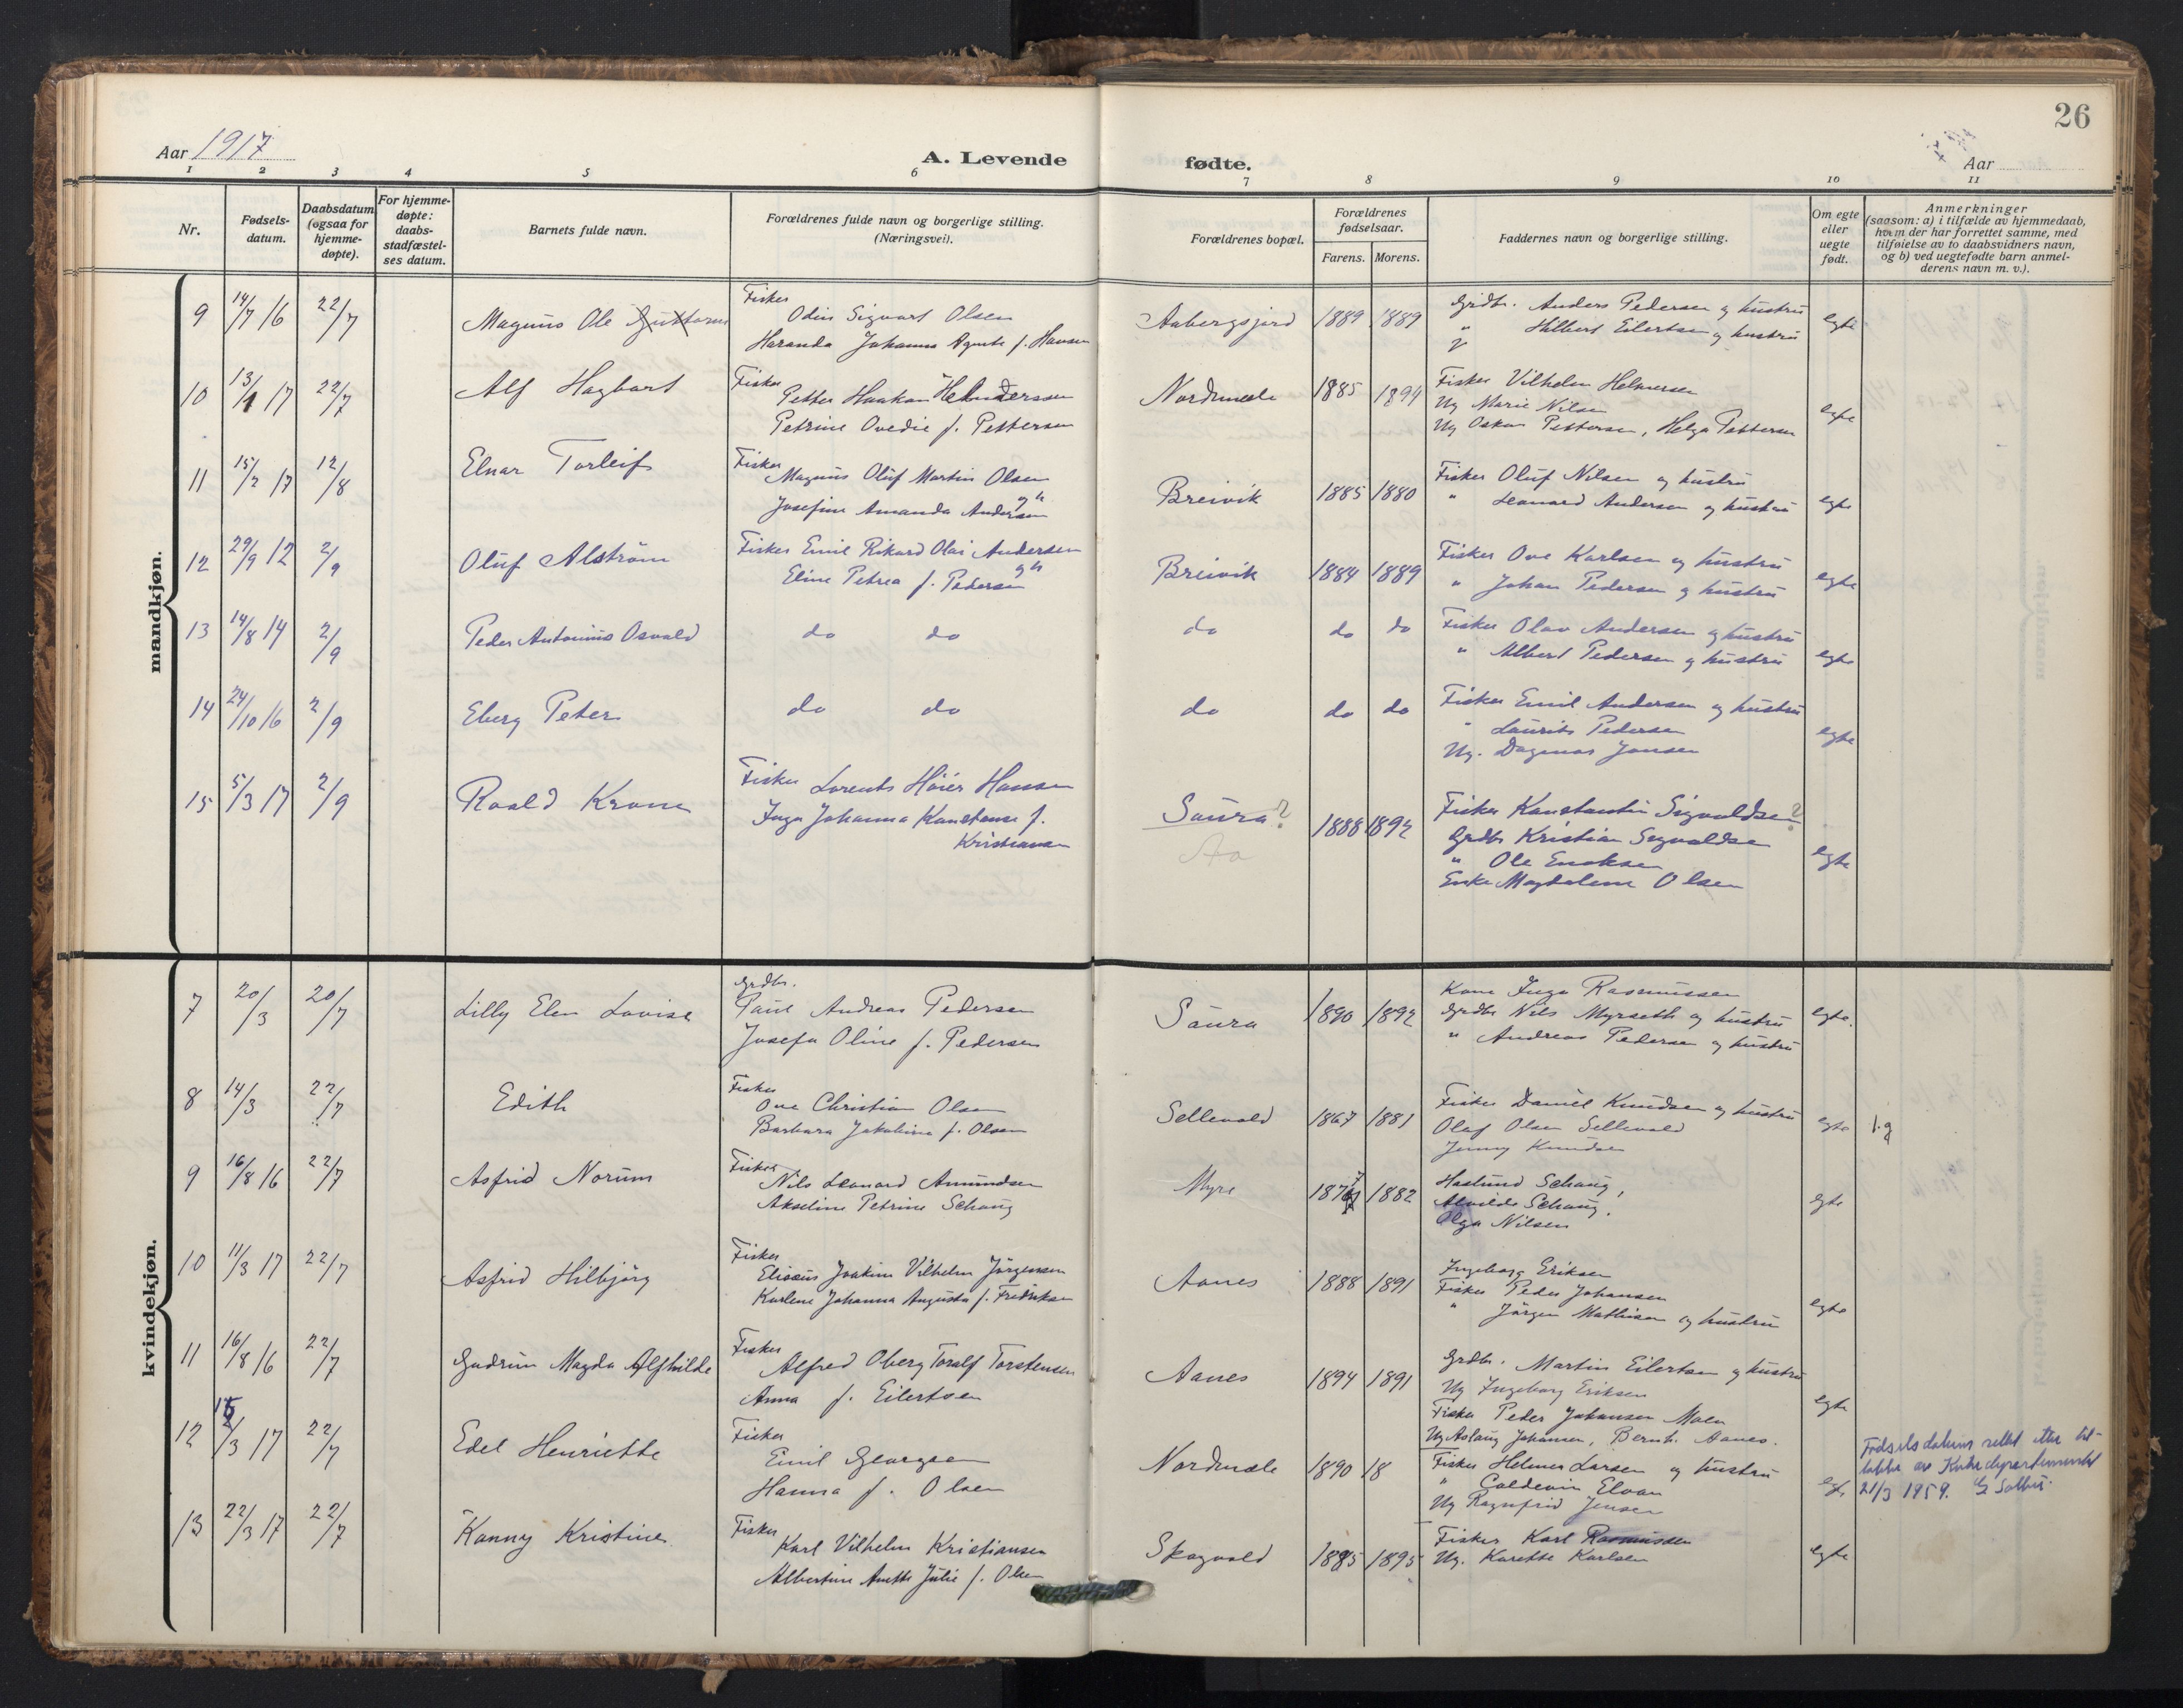 26
Aar 1917
A. Levende fødte.
Aar
1 2 3 4 5 6 7 8 9 10 11
Nr.
Fødsels-
datum.
Daabsdatum
(ogsaa for
hjemme-
døpte).
For hjemme-
døpte:
daabs-
stadfæstel-
ses datum.
Barnets fulde navn.
Forældrenes fulde navn og borgerlige stilling.
(Næringsvei).
Forældrenes bopæl.
Forældrenes
fødselsaar.
Farens. Morens.
Faddernes navn og borgerlige stilling.
Om egte
eller
uegte
født.
Anmerkninger
(saasom: a) i tilfælde av hjemmedaab,
hvem der har forrettet samme, med
tilføielse av to daabsvidners navn,
og b) ved uegtefødte barn anmel-
derens navn m. v.).
mandkjøn.
9 14/7 16 22/7 Magnus Ole
Fisker
Odin Sigvart Olsen
Haranda Johanna Agnete f. Hansen
1889 1889
Grdbr. Anders Pedersen og hustru
" Hilbert Eilertsen og hustru
egte
10 13/1 17 22/7 Alf Hagbart
Fisker
Petter Haakon
Petrine Ovedie f. Pettersen
Nordmele 1885 1894
Fisker Vilhelm Helmersen
Ug Marie Nilsen
Ug Oskar Pettersen, Helga Pettersen
egte
11 15/2 17 12/8 Elnar Torleif
Fisker
Magnus Oluf Martin Olsen
Josefine Amanda Andersen
Breivik 1885 1880
Fisker Oluf Nilsen og hustru
" Leonard Andersen og hustru
egte
12 29/9 12 2/9 Oluf Alstrøm
Fisker Emil Rikard Olai Andersen
Eline Petrea f. Pedersen
Breivik 1884 1889
Fisker Ove Karlsen og hustru
" Johan Pedersen og hustru
egte
13 14/8 14 2/9 Peder Antonius Osvald
do do do do do
Fisker Olav Andersen og hustru
" Albert Pedersen og hustru
egte
14 24/10 16 2/9 Eberg Peter
do do do do do
Fisker Emil Andersen og hustru
" Laurits Pedersen
Ug. Dagmar Jensen
egte
15 5/3 17 2/9 Roald Krone
Fisker Lorents Höier Hansen
Inga Johanna Konstanse f.
Kristiansen
Saura?
Aa
1888 1892
Fisker Konstantin Sigvaldsen?
Grdbr Kristian Sigvaldsen
" Ole Enoksen
Enke Magdalene Olsen
egte
kvindekjøn.
7 20/3 20/7 Lilly Elen Lovise
Grdbr.
Paul Andreas Pedersen
Josefa Oline f. Pedersen
Saura 1890 1892
Kone Inga Rasmussen
Grdbr Nils Myrseth og hustru
" Andreas Pedersen og hustru
egte.
8 14/3 22/7 Edith
Fisker
Ove Christian Olsen
Barbara Jakobine f. Olsen
Sellevold 1867 1881
Fisker Daniel Knudsen og hustru
Olaf Olsen Sellevold
Jenny Knudsen
egte
1.g
9 16/8 16 22/7 Asfrid Norum
Fisker
Nils Leonard Amundsen
Akseline Petrine Schaug
Myre 1882
Haslund Schaug,
Alvilde Schaug.
Olga Nilsen
egte
10 11/3 17 22/7 Asfrid Hilbjörg
Fisker
Elisæus Joakim Vilhelm Jörgensen
Karlene Johanna Augusta f. Fredriksen
Aanes 1888 1891
Ingeborg Eriksen
Fisker Peder Johansen
" Jörgen Mathisen og hustru
egte
11 16/8 16 22/7 Gudrun Magda Alfhilde
Fisker
Alfred Oberg Toralf Torstensen
Anna f. Eilertsen
Aanes 1894 1891
Grdbr. Martin Eilertsen og hustru
Ug Ingeborg Eriksen
Fisker Peder Johansen Moen
Ug Aslaug Johansen, Bernh. Aanes.
egte
12 15/3 17 22/7 Edel Henriette
Fisker
Emil Georgsen
Hanna f. Olsen
Nordmele 1890 18
Fisker Helmer Larsen og hustru
" Coldevin Elvan
Ug Ragnfrid Jensen
egte
Fødselsdatum rettet etter til-
latelse av Kirkedepartementet
21/3 1959.
13 22/3 17 22/7 Kanny Kristine
Fisker
Karl Vilhelm Kristiansen
Albertine Anette Julie f. Olsen
Skogvold 1885 1895
Fisker Karl Rasmussen
Ug. Karette Karlsen
egte